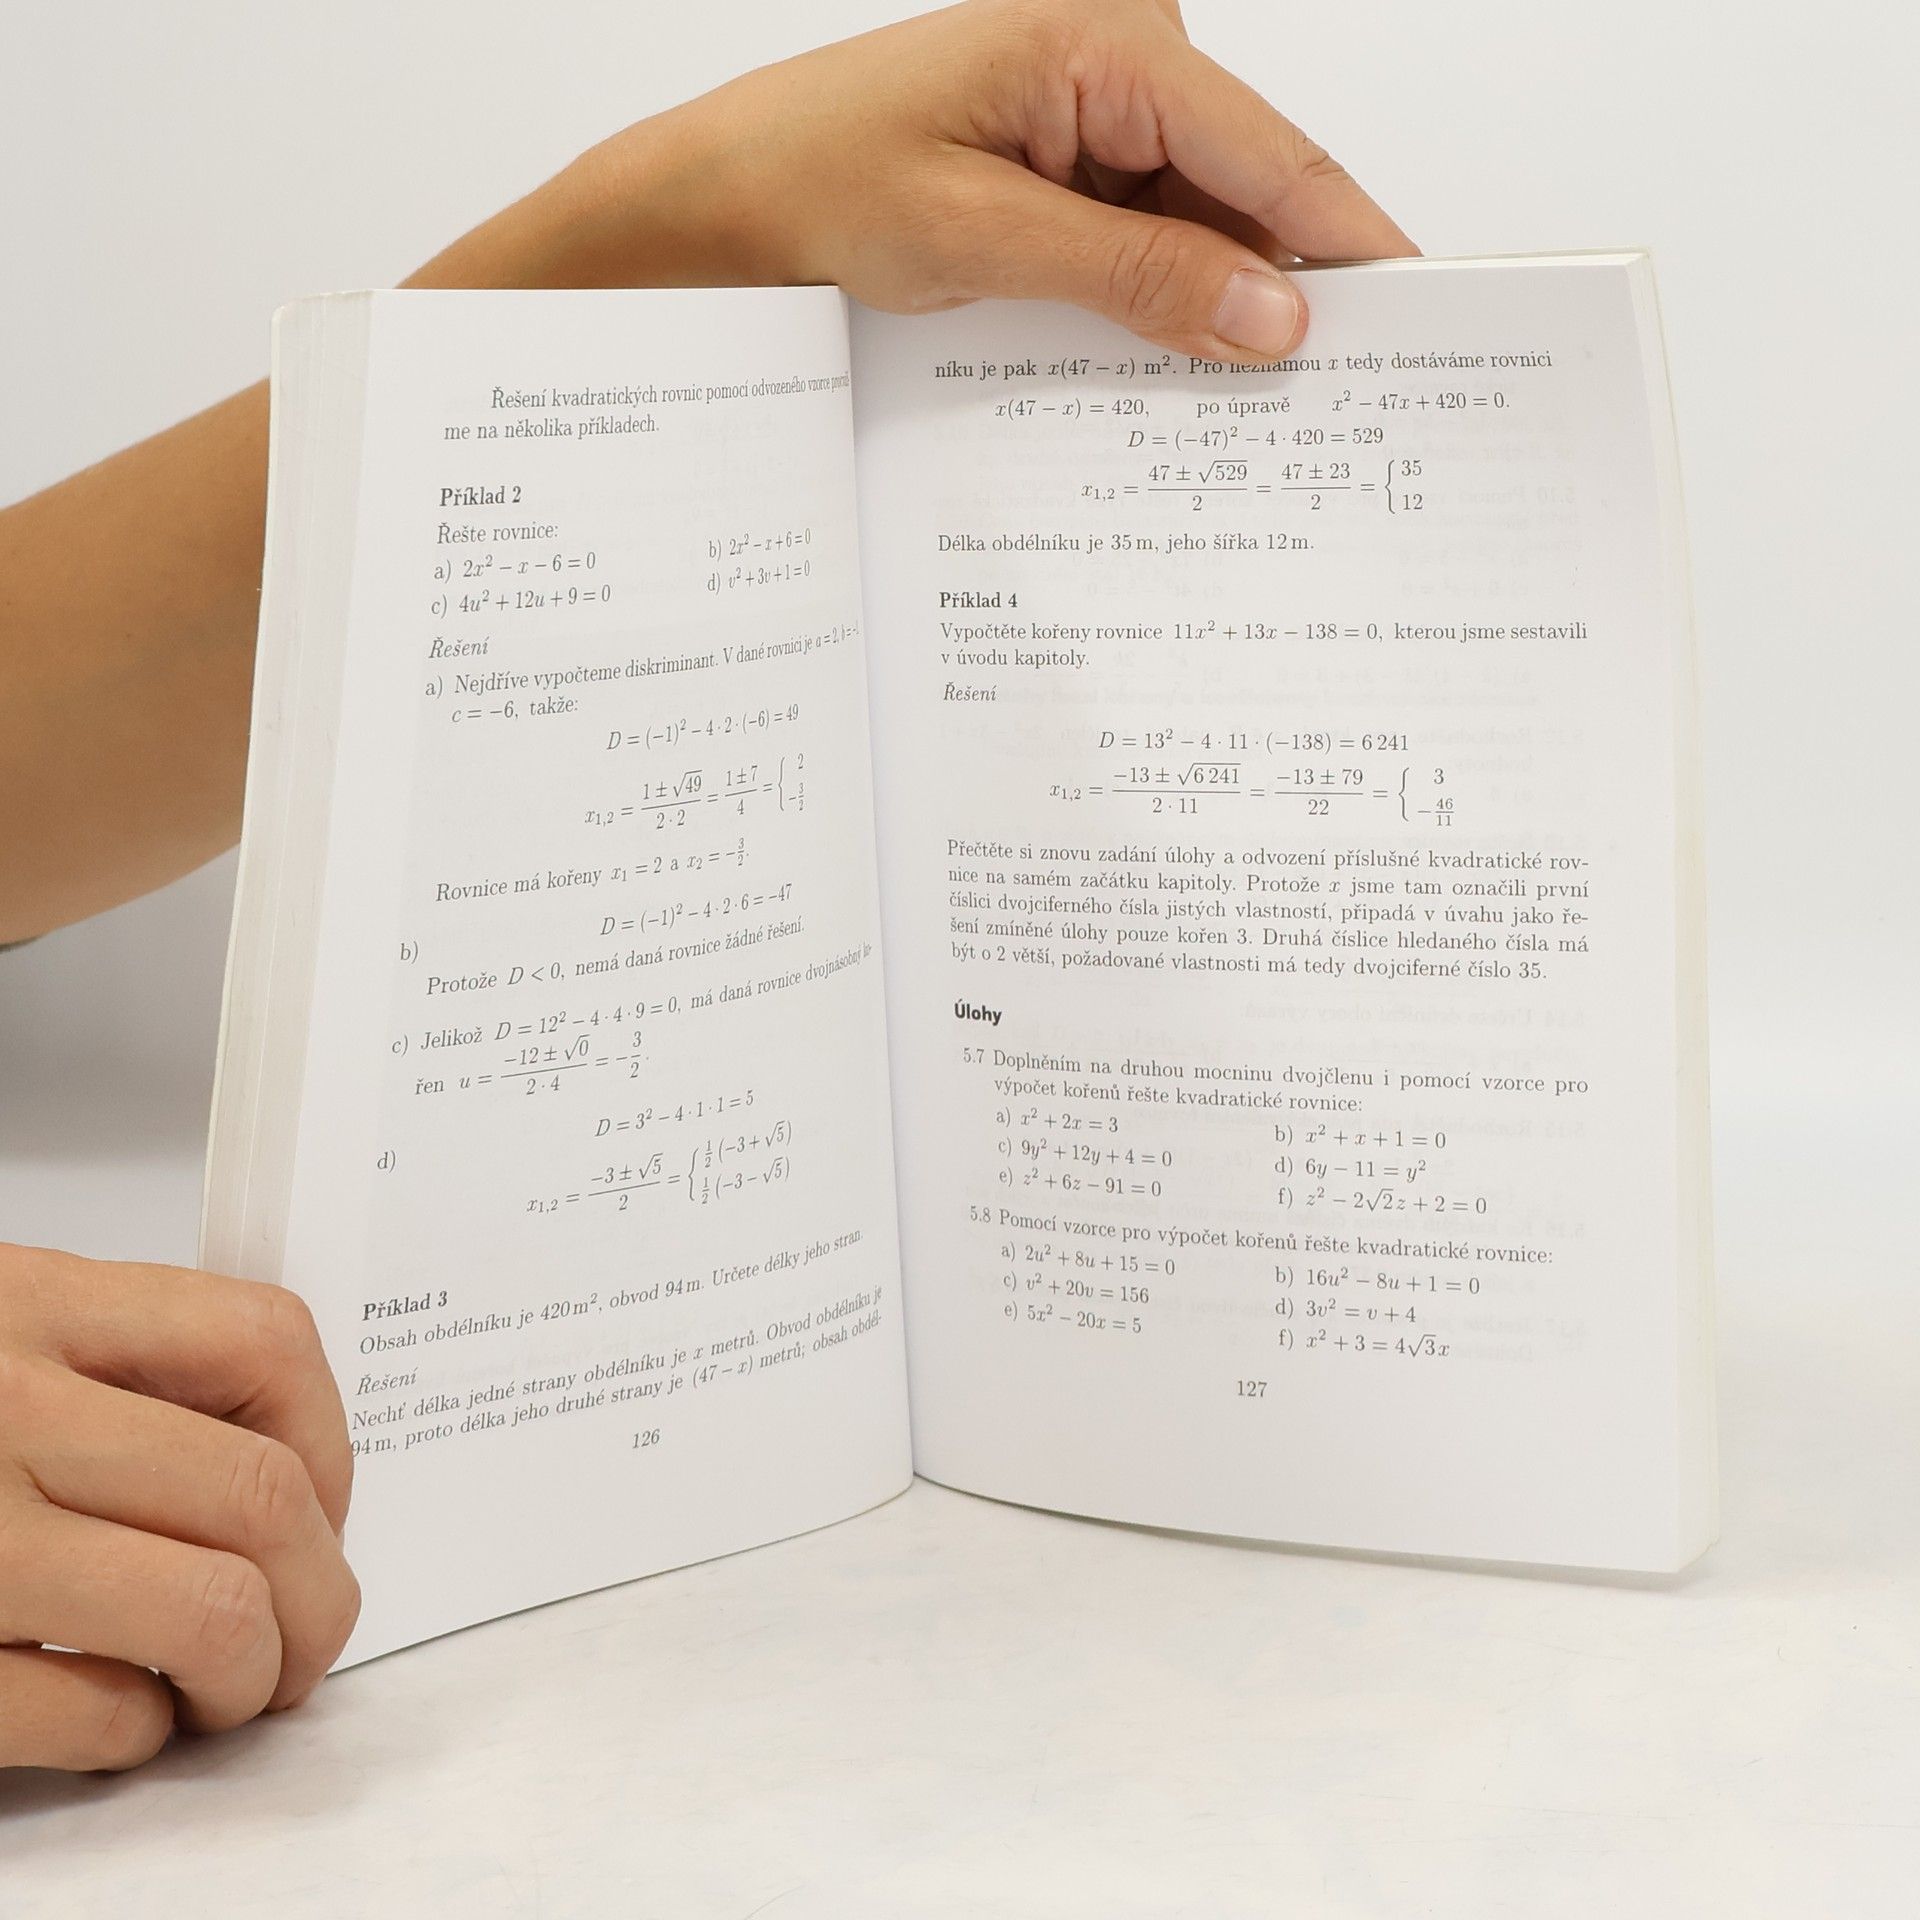 Řešení kvadratických rovnic pomocí odvozeného vzorce
me na několika příkladech.
Příklad 2
Řešte rovnice:
a) 2x² − x − 6 = 0 b) 2x² − x + 6 = 0
c) 4u² + 12u + 9 = 0 d) v² + 3v + 1 = 0
Řešení
a) Nejdříve vypočteme diskriminant. V dané rovnici je a = 2, b = −1,
c = −6, takže:
D = (−1)² − 4 · 2 · (−6) = 49
x₁,₂ = (1 ± √49)/(2 · 2) = (1 ± 7)/4 = { 2 ; −3/2
Rovnice má kořeny x₁ = 2 a x₂ = −3/2.
b) D = (−1)² − 4 · 2 · 6 = −47
Protože D < 0, nemá daná rovnice žádné řešení.
c) Jelikož D = 12² − 4 · 4 · 9 = 0, má daná rovnice dvojnásobný ko-
řen u = (−12 ± √0)/(2 · 4) = −3/2.
D = 3² − 4 · 1 · 1 = 5
d) x₁,₂ = (−3 ± √5)/2 = { 1/2 (−3 + √5) ; 1/2 (−3 − √5)
Příklad 3
Obsah obdélníku je 420 m², obvod 94 m. Určete délky jeho stran.
Řešení
Nechť délka jedné strany obdélníku je x metrů. Obvod obdélníku je
94 m, proto délka jeho druhé strany je (47 − x) metrů; obsah obdél-
126
níku je pak x(47 − x) m². Pro neznámou x tedy dostáváme rovnici
x(47 − x) = 420, po úpravě x² − 47x + 420 = 0.
D = (−47)² − 4 · 420 = 529
x₁,₂ = (47 ± √529)/2 = (47 ± 23)/2 = { 35 ; 12
Délka obdélníku je 35 m, jeho šířka 12 m.
Příklad 4
Vypočtěte kořeny rovnice 11x² + 13x − 138 = 0, kterou jsme sestavili
v úvodu kapitoly.
Řešení
D = 13² − 4 · 11 · (−138) = 6 241
x₁,₂ = (−13 ± √6 241)/(2 · 11) = (−13 ± 79)/22 = { 3 ; −46/11
Přečtěte si znovu zadání úlohy a odvození příslušné kvadratické rov-
nice na samém začátku kapitoly. Protože x jsme tam označili první
číslici dvojciferného čísla jistých vlastností, připadá v úvahu jako ře-
šení zmíněné úlohy pouze kořen 3. Druhá číslice hledaného čísla má
být o 2 větší, požadované vlastnosti má tedy dvojciferné číslo 35.
Úlohy
5.7 Doplněním na druhou mocninu dvojčlenu i pomocí vzorce pro
výpočet kořenů řešte kvadratické rovnice:
a) x² + 2x = 3 b) x² + x + 1 = 0
c) 9y² + 12y + 4 = 0 d) 6y − 11 = y²
e) z² + 6z − 91 = 0 f) z² − 2√2 z + 2 = 0
5.8 Pomocí vzorce pro výpočet kořenů řešte kvadratické rovnice:
a) 2u² + 8u + 15 = 0 b) 16u² − 8u + 1 = 0
c) v² + 20v = 156 d) 3v² = v + 4
e) 5x² − 20x = 5 f) x² + 3 = 4√3x
127